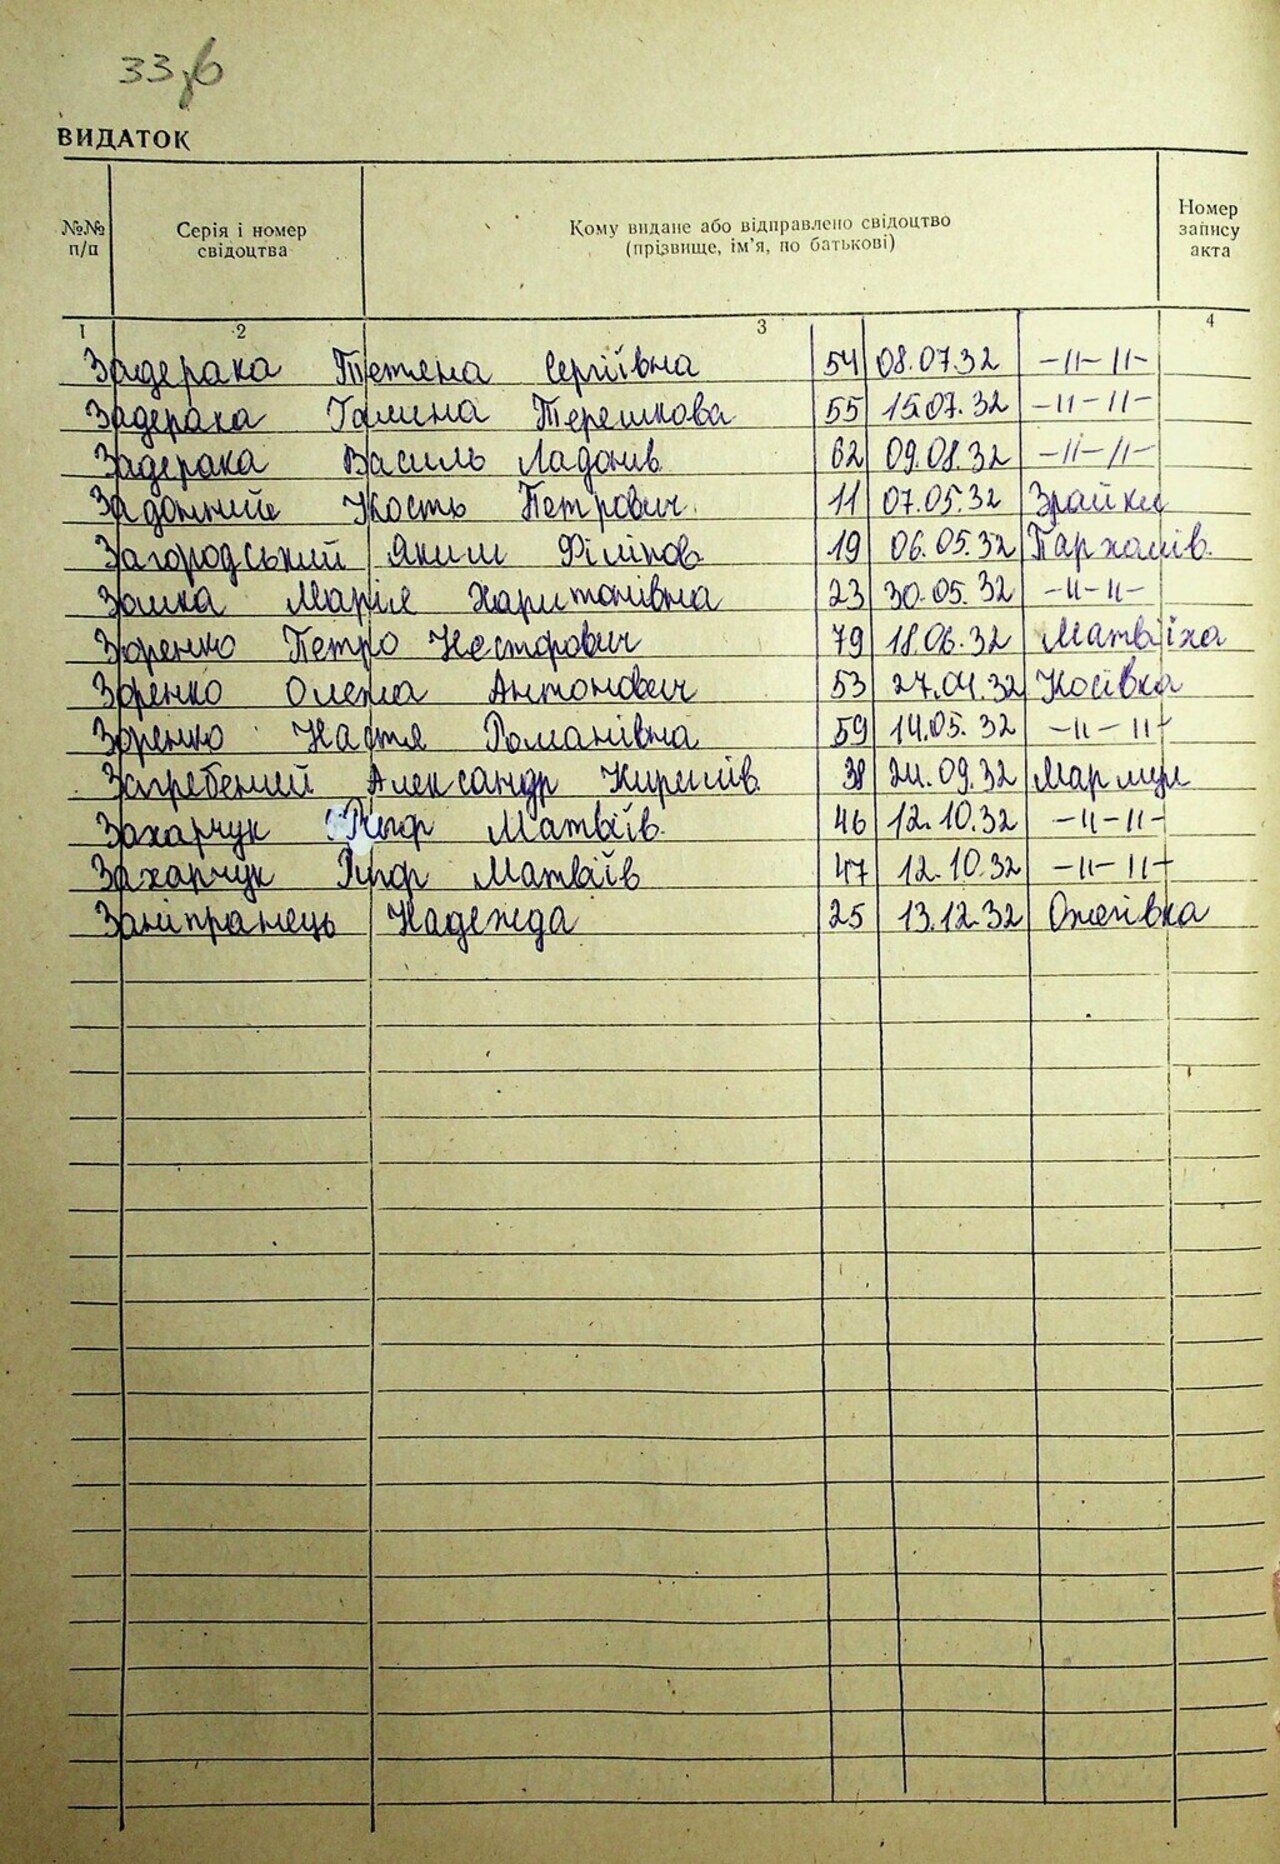 33,6
ВИДАТОК
№№ п/п Серія і номер свідоцтва Кому видане або відправлено свідоцтво (прізвище, ім'я, по батькові) Номер запису акта
1 2 3 4
Задерака Тетяна Сергіївна 54 08.07.32 -11- 11-
Задерака Галина Терешкова 55 15.07.32 -11- 11-
Задерака Василь Ладонів 62 09.08.32 -11- 11-
Задонний Кость Петрович 11 07.05.32 Зрайки
Загородський Яким Філіпов 19 06.05.32 Пархомів.
Заика Марія Харитонівна 23 30.05.32 -11- 11-
Зоренко Петро Несторович 79 18.06.32 Матвіїха
Зоренко Олекса Антонович 53 27.04.32 Косівка
Зоренко Настя Романівна 59 14.05.32 -11- 11-
Загребений Александр Кирилів 38 24.09.32 Мармул
Захарчук Матвіїв 46 12.10.32 -11- 11-
Захарчук Матвіїв 47 12.10.32 -11- 11-
Надежда 25 13.12.32 Ожегівка